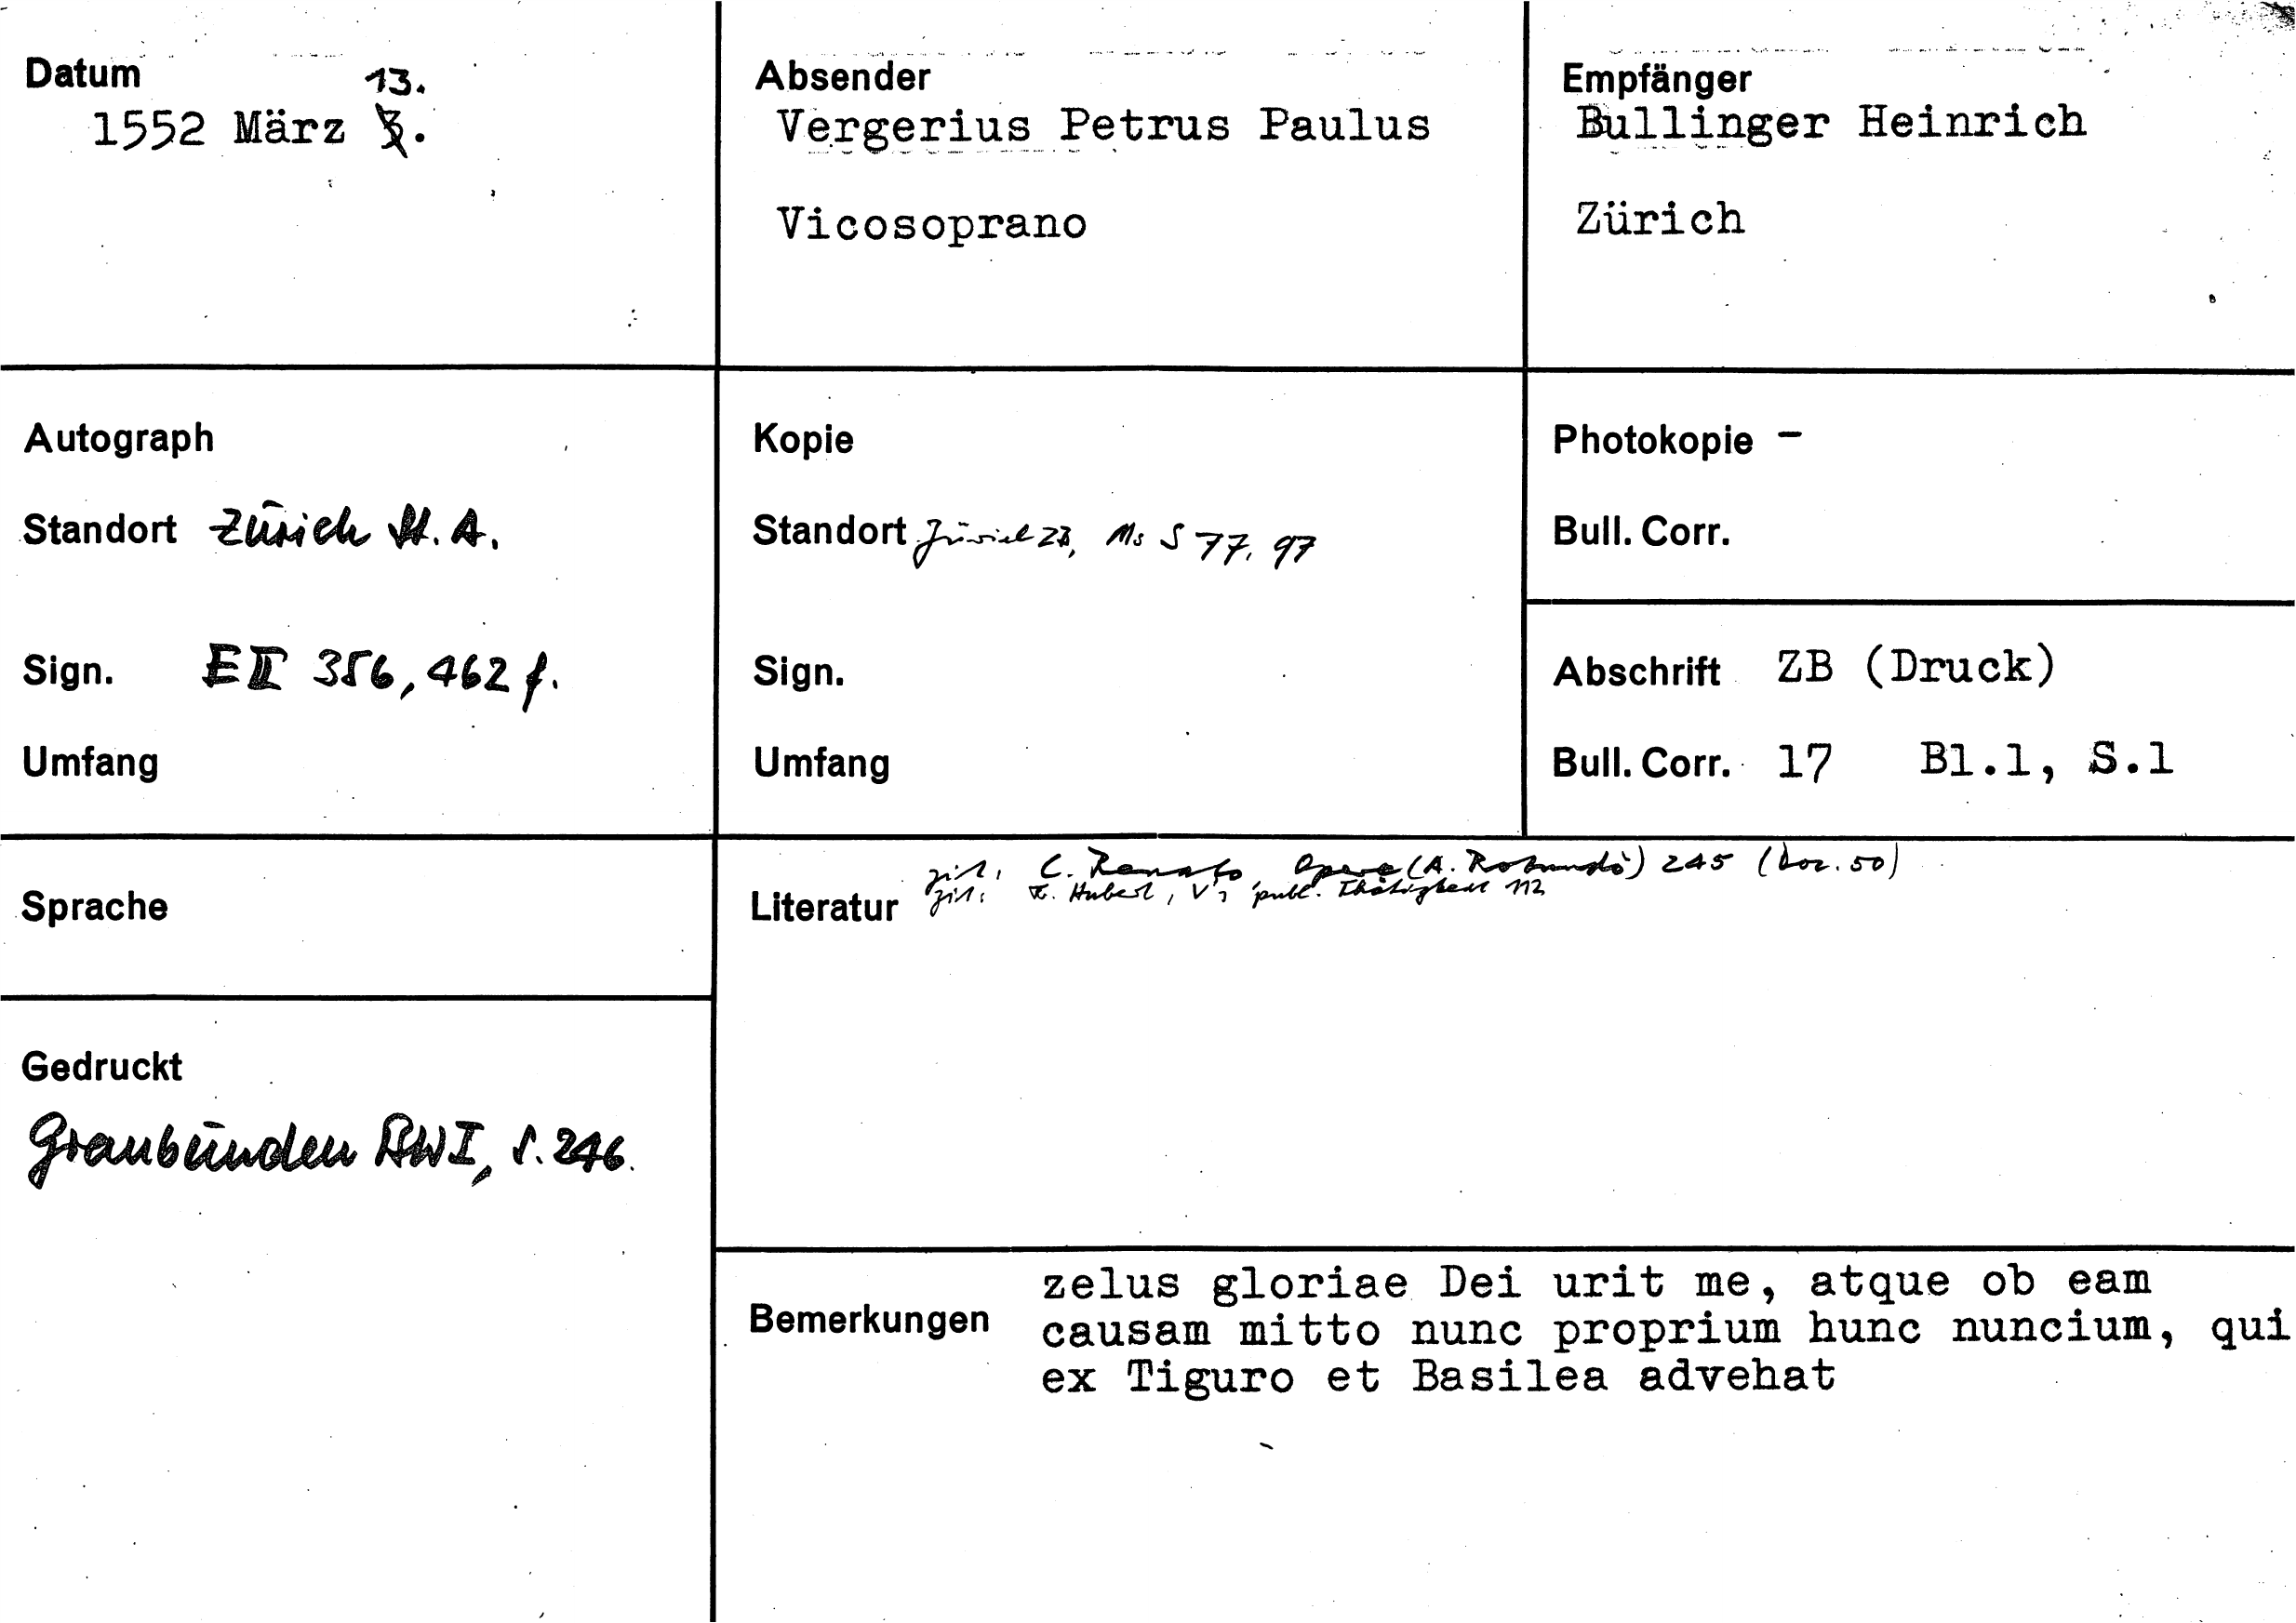 Datum
13.
1552 März 3.
Absender
Vergerius Petrus Paulus
Vicosoprano
Empfänger
Bullinger Heinrich
Zürich
Autograph
Standort Zürich St. A.
Sign. E II 356, 462 f.
Umfang
Kopie
Standort Zürich ZB, Ms S 77, 97
Sign.
Umfang
Photokopie -
Bull. Corr.
Abschrift ZB (Druck)
Bull. Corr. 17 Bl.1, S.1
Sprache
Gedruckt
Graubünden BW I, S. 246.
Literatur
zit.: C. Renato, Opere (A. Rotondò) 245 (Doc. 50)
zit.: F. Hubert, V's publ. Thätigkeit 112
Bemerkungen
zelus gloriae Dei urit me, atque ob eam
causam mitto nunc proprium hunc nuncium, qui
ex Tiguro et Basilea advehat